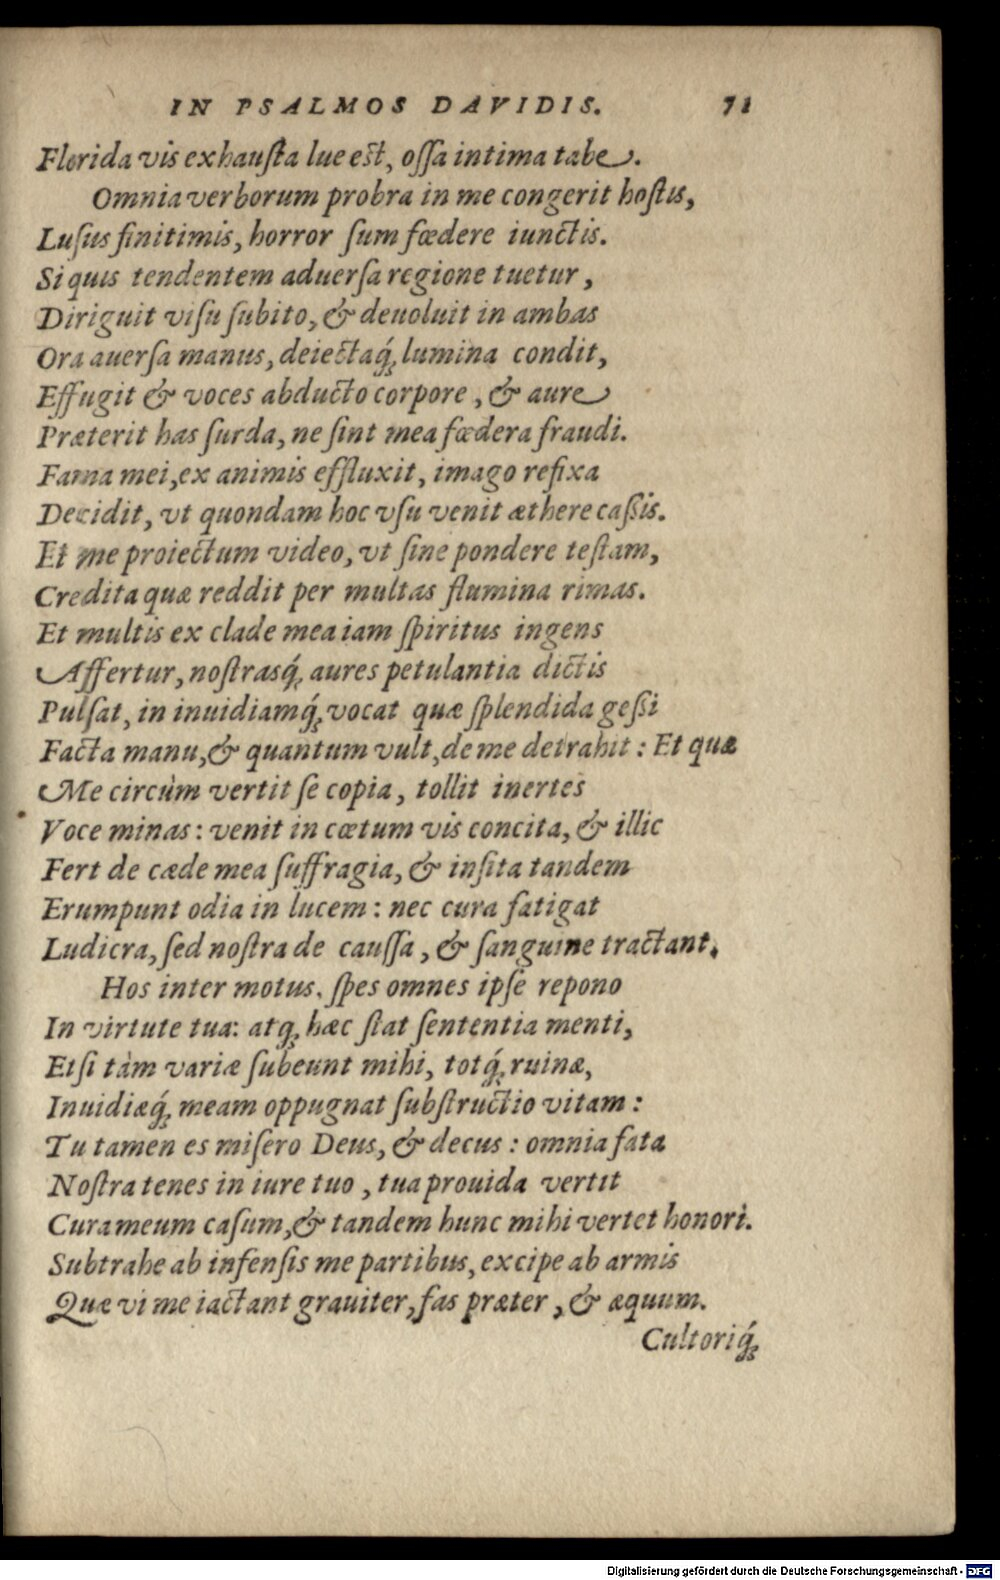 IN PSALMOS DAVIDIS. 71
Florida vis exhausta lue est, ossa intima tabe.
Omnia verborum probra in me congerit hostis,
Lusus finitimis, horror sum fœdere iunctis.
Si quis tendentem aduersa regione tuetur,
Diriguit visu subito, & deuoluit in ambas
Ora auersa manus, deiectaq́; lumina condit,
Effugit & voces abducto corpore, & aure
Præterit has surda, ne sint mea fœdera fraudi.
Fama mei, ex animis effluxit, imago refixa
Decidit, vt quondam hoc vsu venit æthere cassis.
Et me proiectum video, vt sine pondere testam,
Credita quæ reddit per multas flumina rimas.
Et multis ex clade mea iam spiritus ingens
Affertur, nostrasq́; aures petulantia dictis
Pulsat, in inuidiamq́; vocat quæ splendida gessi
Facta manu, & quantum vult, de me detrahit: Et quæ
Me circùm vertit se copia, tollit inertes
Voce minas: venit in cœtum vis concita, & illic
Fert de cæde mea suffragia, & insita tandem
Erumpunt odia in lucem: nec cura fatigat
Ludicra, sed nostra de caussa, & sanguine tractant.
Hos inter motus. spes omnes ipse repono
In virtute tua: atq; hæc stat sententia menti,
Etsi tàm variæ subeunt mihi, totq́; ruinæ,
Inuidiæq́; meam oppugnat substructio vitam:
Tu tamen es misero Deus, & decus: omnia fata
Nostra tenes in iure tuo, tua prouida vertit
Cura meum casum, & tandem hunc mihi vertet honori.
Subtrahe ab infensis me partibus, excipe ab armis
Quæ vi me iactant grauiter, fas præter, & æquum.
Cultoriq́;
Digitalisierung gefördert durch die Deutsche Forschungsgemeinschaft - DFG